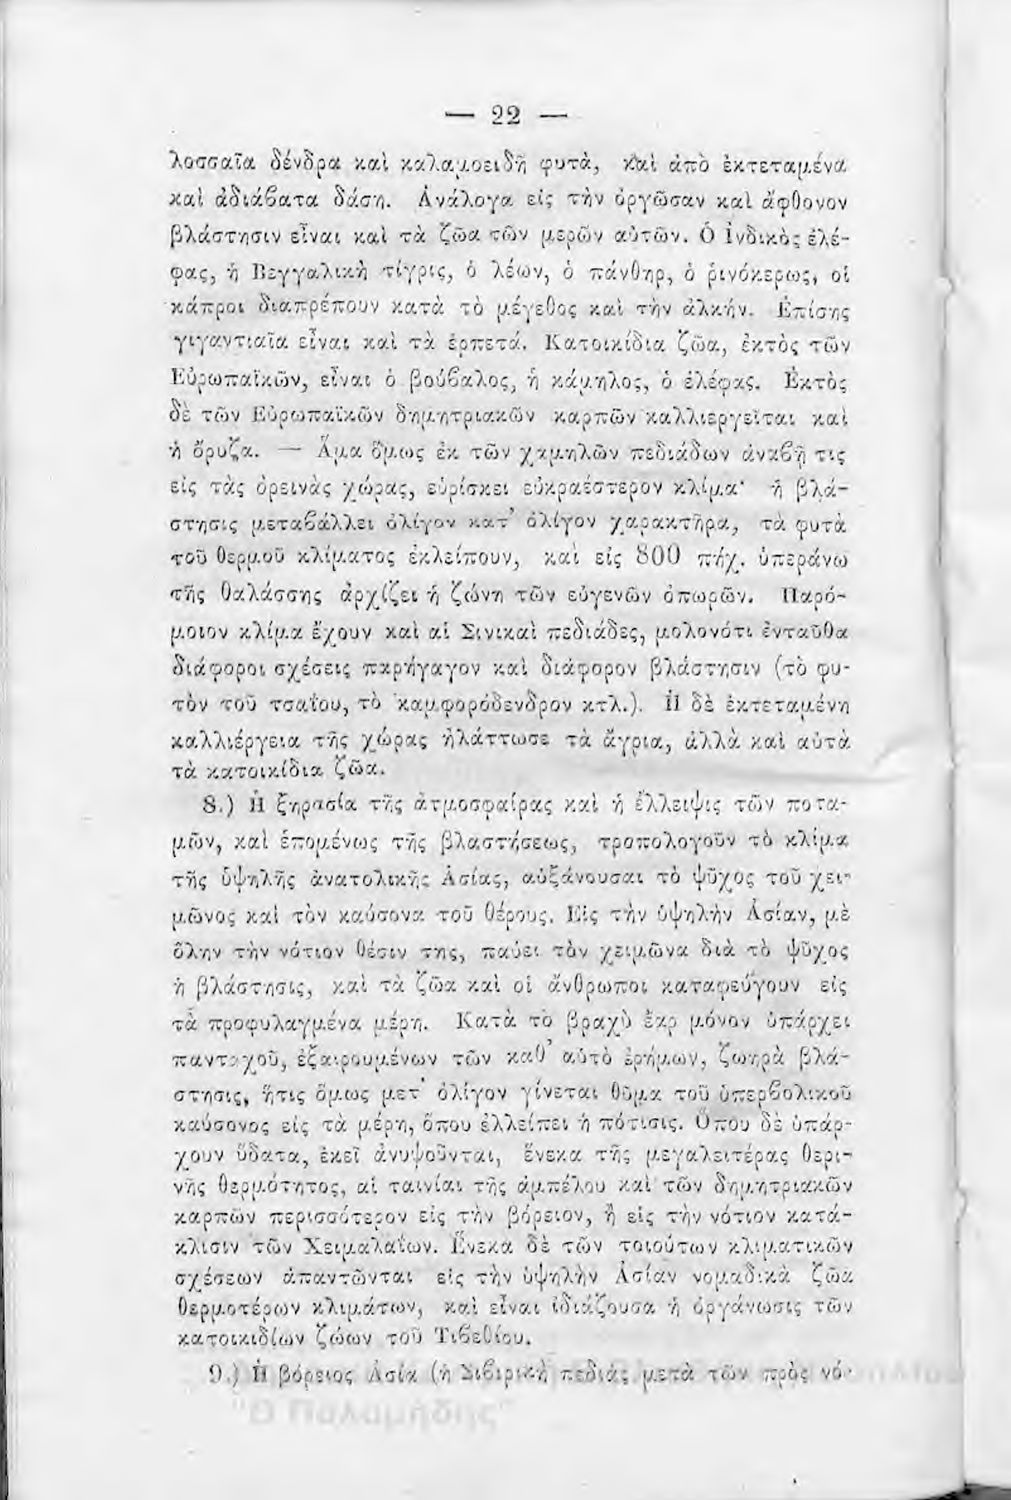 — 22 —
λοσσαῖα δένδρα καὶ καλαμοειδῆ φυτὰ, καὶ ἀπὸ ἐκτεταμένα
καὶ ἀδιάβατα δάση. Ἀνάλογα εἰς τὴν ὀργῶσαν καὶ ἄφθονον
βλάστησιν εἶναι καὶ τὰ ζῶα τῶν μερῶν αὐτῶν. Ὁ Ἰνδικὸς ἐλέ-
φας, ἡ Βεγγαλικὴ τίγρις, ὁ λέων, ὁ πάνθηρ, ὁ ῥινόκερως, οἱ
κάπροι διαπρέπουν κατὰ τὸ μέγεθος καὶ τὴν ἀλκήν. Ἐπίσης
γιγαντιαῖα εἶναι καὶ τὰ ἑρπετά. Κατοικίδια ζῶα, ἐκτὸς τῶν
Εὐρωπαϊκῶν, εἶναι ὁ βούβαλος, ἡ κάμηλος, ὁ ἐλέφας. Ἐκτὸς
δὲ τῶν Εὐρωπαϊκῶν δημητριακῶν καρπῶν καλλιεργεῖται καὶ
ἡ ὄρυζα. — Ἅμα ὅμως ἐκ τῶν χαμηλῶν πεδιάδων ἀναβῇ τις
εἰς τὰς ὀρεινὰς χώρας, εὑρίσκει εὐκραέστερον κλίμα· ἡ βλά-
στησις μεταβάλλει ὀλίγον κατ’ ὀλίγον χαρακτῆρα, τὰ φυτὰ
τοῦ θερμοῦ κλίματος ἐκλείπουν, καὶ εἰς 800 πήχ. ὑπεράνω
τῆς θαλάσσης ἀρχίζει ἡ ζώνη τῶν εὐγενῶν ὀπωρῶν. Παρό-
μοιον κλίμα ἔχουν καὶ αἱ Σινικαὶ πεδιάδες, μολονότι ἐνταῦθα
διάφοροι σχέσεις παρήγαγον καὶ διάφορον βλάστησιν (τὸ φυ-
τὸν τοῦ τσαΐου, τὸ καμφορόδενδρον κτλ.). Ἡ δὲ ἐκτεταμένη
καλλιέργεια τῆς χώρας ἠλάττωσε τὰ ἄγρια, ἀλλὰ καὶ αὐτὰ
τὰ κατοικίδια ζῶα.
8.) Ἡ ξηρασία τῆς ἀτμοσφαίρας καὶ ἡ ἔλλειψις τῶν ποτα-
μῶν, καὶ ἑπομένως τῆς βλαστήσεως, τροπολογοῦν τὸ κλίμα
τῆς ὑψηλῆς ἀνατολικῆς Ἀσίας, αὐξάνουσαι τὸ ψῦχος τοῦ χει-
μῶνος καὶ τὸν καύσονα τοῦ θέρους. Εἰς τὴν ὑψηλὴν Ἀσίαν, μὲ
ὅλην τὴν νότιον θέσιν της, παύει τὸν χειμῶνα διὰ τὸ ψῦχος
ἡ βλάστησις, καὶ τὰ ζῶα καὶ οἱ ἄνθρωποι καταφεύγουν εἰς
τὰ προφυλαγμένα μέρη. Κατὰ τὸ βραχὺ ἔαρ μόνον ὑπάρχει
πανταχοῦ, ἐξαιρουμένων τῶν καθ’ αὑτὸ ἐρήμων, ζωηρὰ βλά-
στησις, ἥτις ὅμως μετ’ ὀλίγον γίνεται θῦμα τοῦ ὑπερβολικοῦ
καύσονος εἰς τὰ μέρη, ὅπου ἐλλείπει ἡ πότισις. Ὅπου δὲ ὑπάρ-
χουν ὕδατα, ἐκεῖ ἀνυψοῦνται, ἕνεκα τῆς μεγαλειτέρας θερι-
νῆς θερμότητος, αἱ ταινίαι τῆς ἀμπέλου καὶ τῶν δημητριακῶν
καρπῶν περισσότερον εἰς τὴν βόρειον, ἢ εἰς τὴν νότιον κατά-
κλισιν τῶν Χειμαλαΐων. Ἕνεκα δὲ τῶν τοιούτων κλιματικῶν
σχέσεων ἀπαντῶνται εἰς τὴν ὑψηλὴν Ἀσίαν νομαδικὰ ζῶα
θερμοτέρων κλιμάτων, καὶ εἶναι ἰδιάζουσα ἡ ὀργάνωσις τῶν
κατοικιδίων ζώων τοῦ Τιβεθίου.
9.) Ἡ βόρειος Ἀσία (ἡ Σιβιρικὴ πεδιὰς μετὰ τῶν πρὸς νό-
"Ο Παλαμήδης"